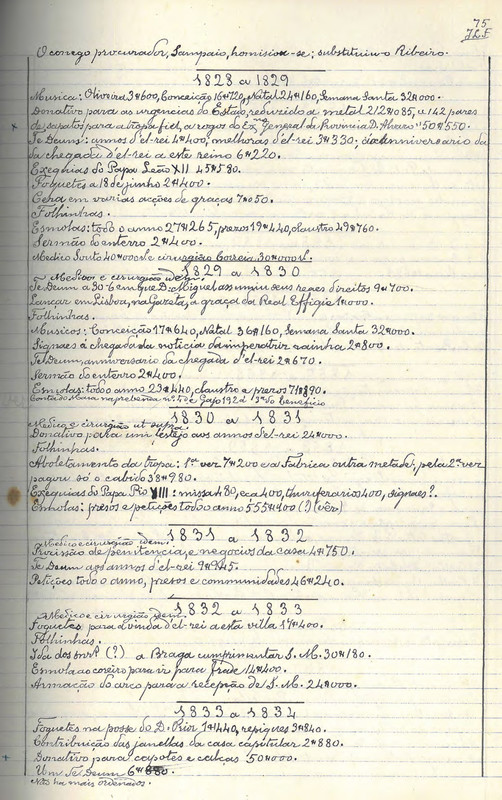 75
J.L.F.
O conego procurador, Sampaio, homisiou-se; substituiu-o Ribeiro.
1828 a 1829
Musica: Oliveira 3#600, Conceição 16#720, Natal 24#160, Semana Santa 32#000.
Donativo para as urgencias do Estado, reduzido a metal 212#085, a 142 pares
x de sapatos para a tropa fiel, a rogos do Exmo General da Provincia D. Alvaro 50#550.
Te Deuns: annos d'el-rei 4#400, melhoras d'el-rei 3#330; anniversario da
da chegada d'el-rei a este reino 6#220.
Exequias do Papa Leão XII 45#580.
Foguetes a 18 de junho 2#400.
Cera em varias acções de graças 7#050.
Folhinhas.
Esmolas: todo o anno 27#265, prezos 19#440, claustro 49#760.
Sermão do enterro 2#400.
Medico Souto 40#000 rs. e cirurgião Correia 30#000 rs.
1829 a 1830
Medico e cirurgião idem.
Te Deum a 30-6 em que D. Miguel assumiu seus reges direitos 9#700.
Lançar em Lisboa, na Gazeta, a graça da Real Effigie 1#000.
Folhinhas.
Musicos: Conceição 17#640, Natal 36#160, Semana Santa 32#000.
Signaes á chegada da noticia da imperatriz rainha 2#800.
Te Deum, anniversario da chegada d'el-rei 2#670.
Sermão do enterro 2#400.
Esmolas: todo o anno 23#440, claustro e prezos 71#890.
1830 a 1831
Medico e cirurgião ut supra.
Donativo para um festejo aos annos d'el-rei 24#000.
Folhinhas.
Aboletamento da tropa: 1ª vez 7#200 e a Fabrica outra metade; pela 2ª vez
pagou só o cabido 38#980.
Exequias do Papa Pio VIII: missa 480, eça 400, thuriferarios 400, signaes?.
Esmolas: presos e petições todo o anno 555#400 (?) (ver)
1831 a 1832
Medico e cirurgião idem.
Procissão de penitencia, e negocios da casa 4#750.
Te Deum aos annos d'el-rei 9#945.
Petições todo o anno, presos e communidades 46#240.
1832 a 1833
Medico e cirurgião idem.
Foguetes para a vinda d'el-rei a esta villa 17#400.
Folhinhas.
Ida dos (?) a Braga cumprimentar S. M. 30#180.
Esmola ao coreiro para ir para frade 14#400.
Armação do arco para a recepção de S. M. 24#000.
1833 a 1834
Foguetes na posse do D. Prior 1#440, repiques 3#840.
Contribuição das janellas da casa capitular 2#880.
+ Donativo para capotes e calças 50#000.
Um Te Deum 6#880.
Não ha mais ordenados.